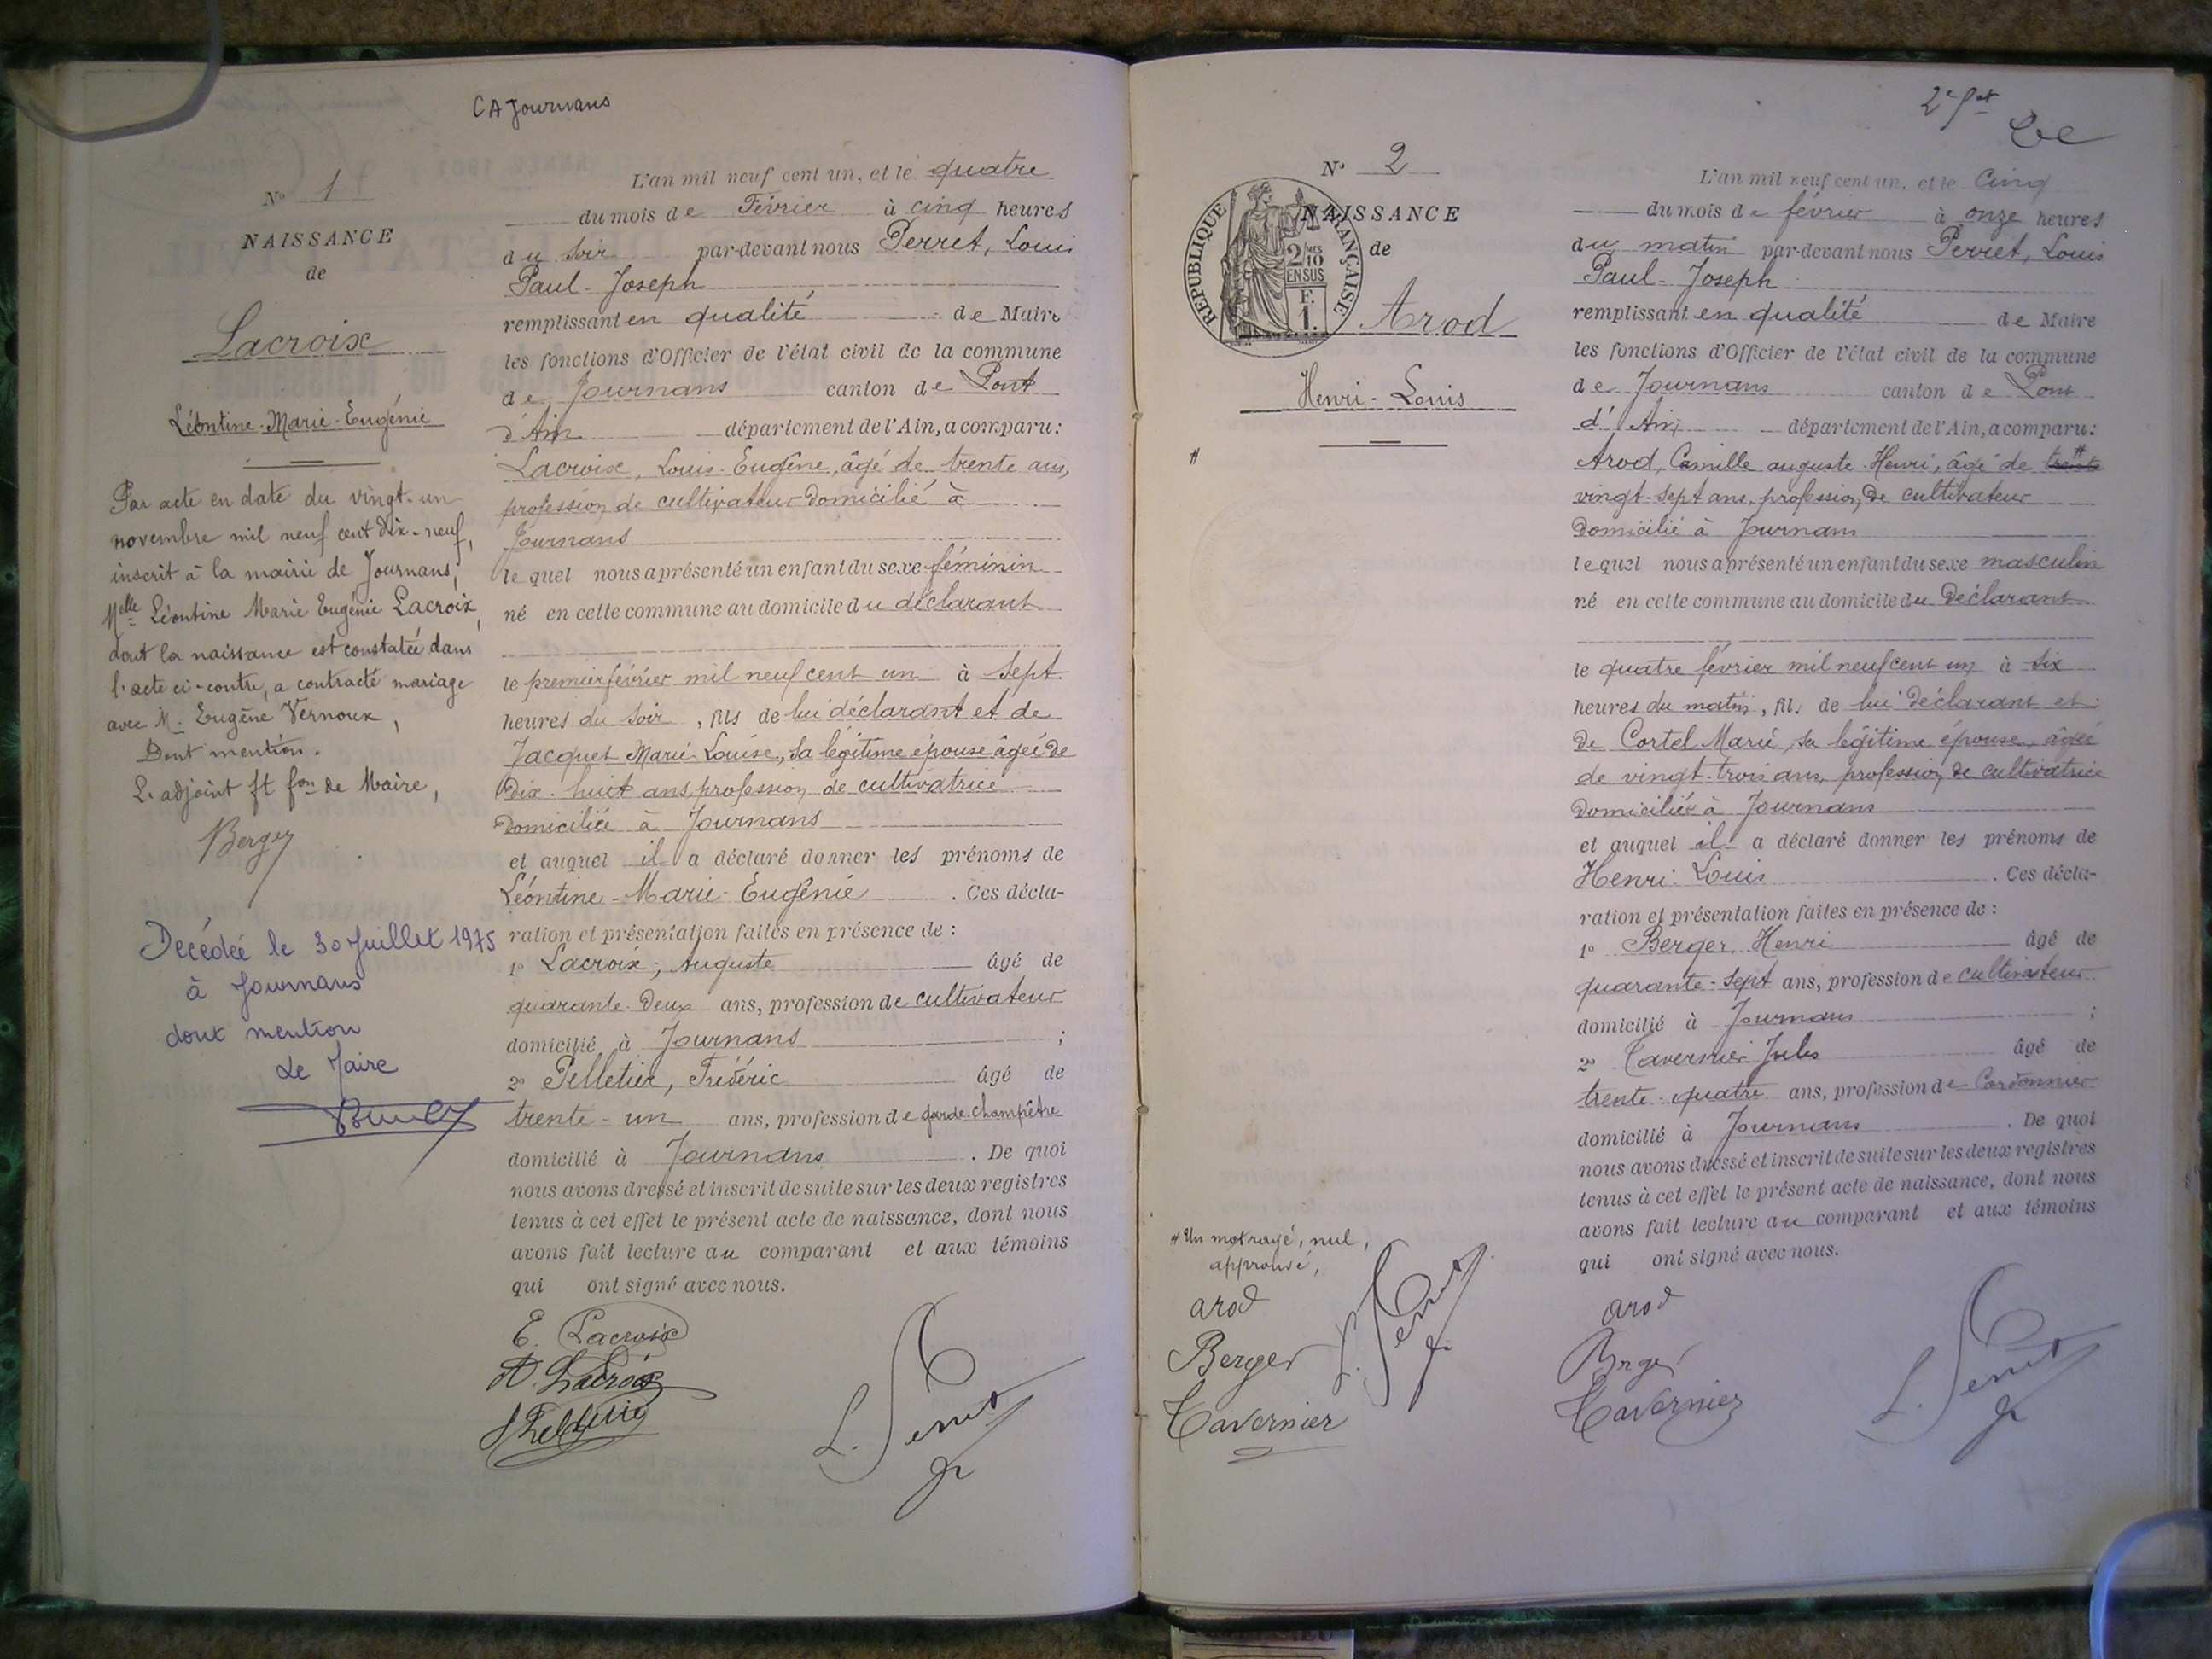 CA Journans
N° 1
NAISSANCE
de
Lacroix
Léontine-Marie-Eugénie
Par acte en date du vingt-un
novembre mil neuf cent dix-neuf,
inscrit à la mairie de Journans,
Melle Léontine Marie Eugénie Lacroix,
dont la naissance est constatée dans
l'acte ci-contre, a contracté mariage
avec M. Eugène Vernoux,
Dont mention.
L'adjoint ft fon de Maire,
Berger
Decédée le 30 Juillet 1975
à Journans
dont mention
Le Maire
L'an mil neuf cent un, et le quatre
du mois de Février à cinq heures
du soir par-devant nous Perret, Louis
Paul-Joseph
remplissant en qualité de Maire
les fonctions d'Officier de l'état civil de la commune
de Journans canton de Pont
d'Ain département de l'Ain, a comparu:
Lacroix, Louis-Eugène, âgé de trente ans,
profession de cultivateur domicilié à
Journans
lequel nous a présenté un enfant du sexe féminin
né en cette commune au domicile du déclarant
le premier février mil neuf cent un à sept
heures du soir, fils de lui déclarant et de
Jacquet Marie-Louise, sa légitime épouse âgée de
dix-huit ans profession de cultivatrice
domiciliée à Journans
et auquel il a déclaré donner les prénoms de
Léontine-Marie-Eugénie. Ces décla-
ration et présentation faites en présence de :
1° Lacroix, Auguste âgé de
quarante-deux ans, profession de cultivateur
domicilié à Journans ;
2° Pelletier, Frédéric âgé de
trente-un ans, profession de garde-champêtre
domicilié à Journans. De quoi
nous avons dressé et inscrit de suite sur les deux registres
tenus à cet effet le présent acte de naissance, dont nous
avons fait lecture au comparant et aux témoins
qui ont signé avec nous.
E. Lacroix
A. Lacroix
Pelletier
L. Perret
2e
N° 2
NAISSANCE
de
RÉPUBLIQUE FRANÇAISE
2/10 MES
EN SUS
F.
1.
Arod
Henri-Louis
#
# Un mot rayé, nul,
approuvé,
Arod
Berger
Tavernier
L. Perret
L'an mil neuf cent un, et le Cinq
du mois de février à onze heures
du matin par-devant nous Perret, Louis
Paul-Joseph
remplissant en qualité de Maire
les fonctions d'Officier de l'état civil de la commune
de Journans canton de Pont
d'Ain département de l'Ain, a comparu:
Arod, Camille auguste Henri, âgé de trente #
vingt-sept ans, profession de cultivateur
domicilié à Journans
lequel nous a présenté un enfant du sexe masculin
né en cette commune au domicile du déclarant
le quatre février mil neuf cent un à six
heures du matin, fils de lui déclarant et
de Cortel Marie, sa légitime épouse, âgée
de vingt-trois ans, profession de cultivatrice
domiciliée à Journans
et auquel il a déclaré donner les prénoms de
Henri Louis. Ces décla-
ration et présentation faites en présence de :
1° Berger Henri âgé de
quarante-sept ans, profession de cultivateur
domicilié à Journans ;
2° Tavernier Jules âgé de
trente-quatre ans, profession de Cordonnier
domicilié à Journans. De quoi
nous avons dressé et inscrit de suite sur les deux registres
tenus à cet effet le présent acte de naissance, dont nous
avons fait lecture au comparant et aux témoins
qui ont signé avec nous.
Arod
Berger
Tavernier
L. Perret